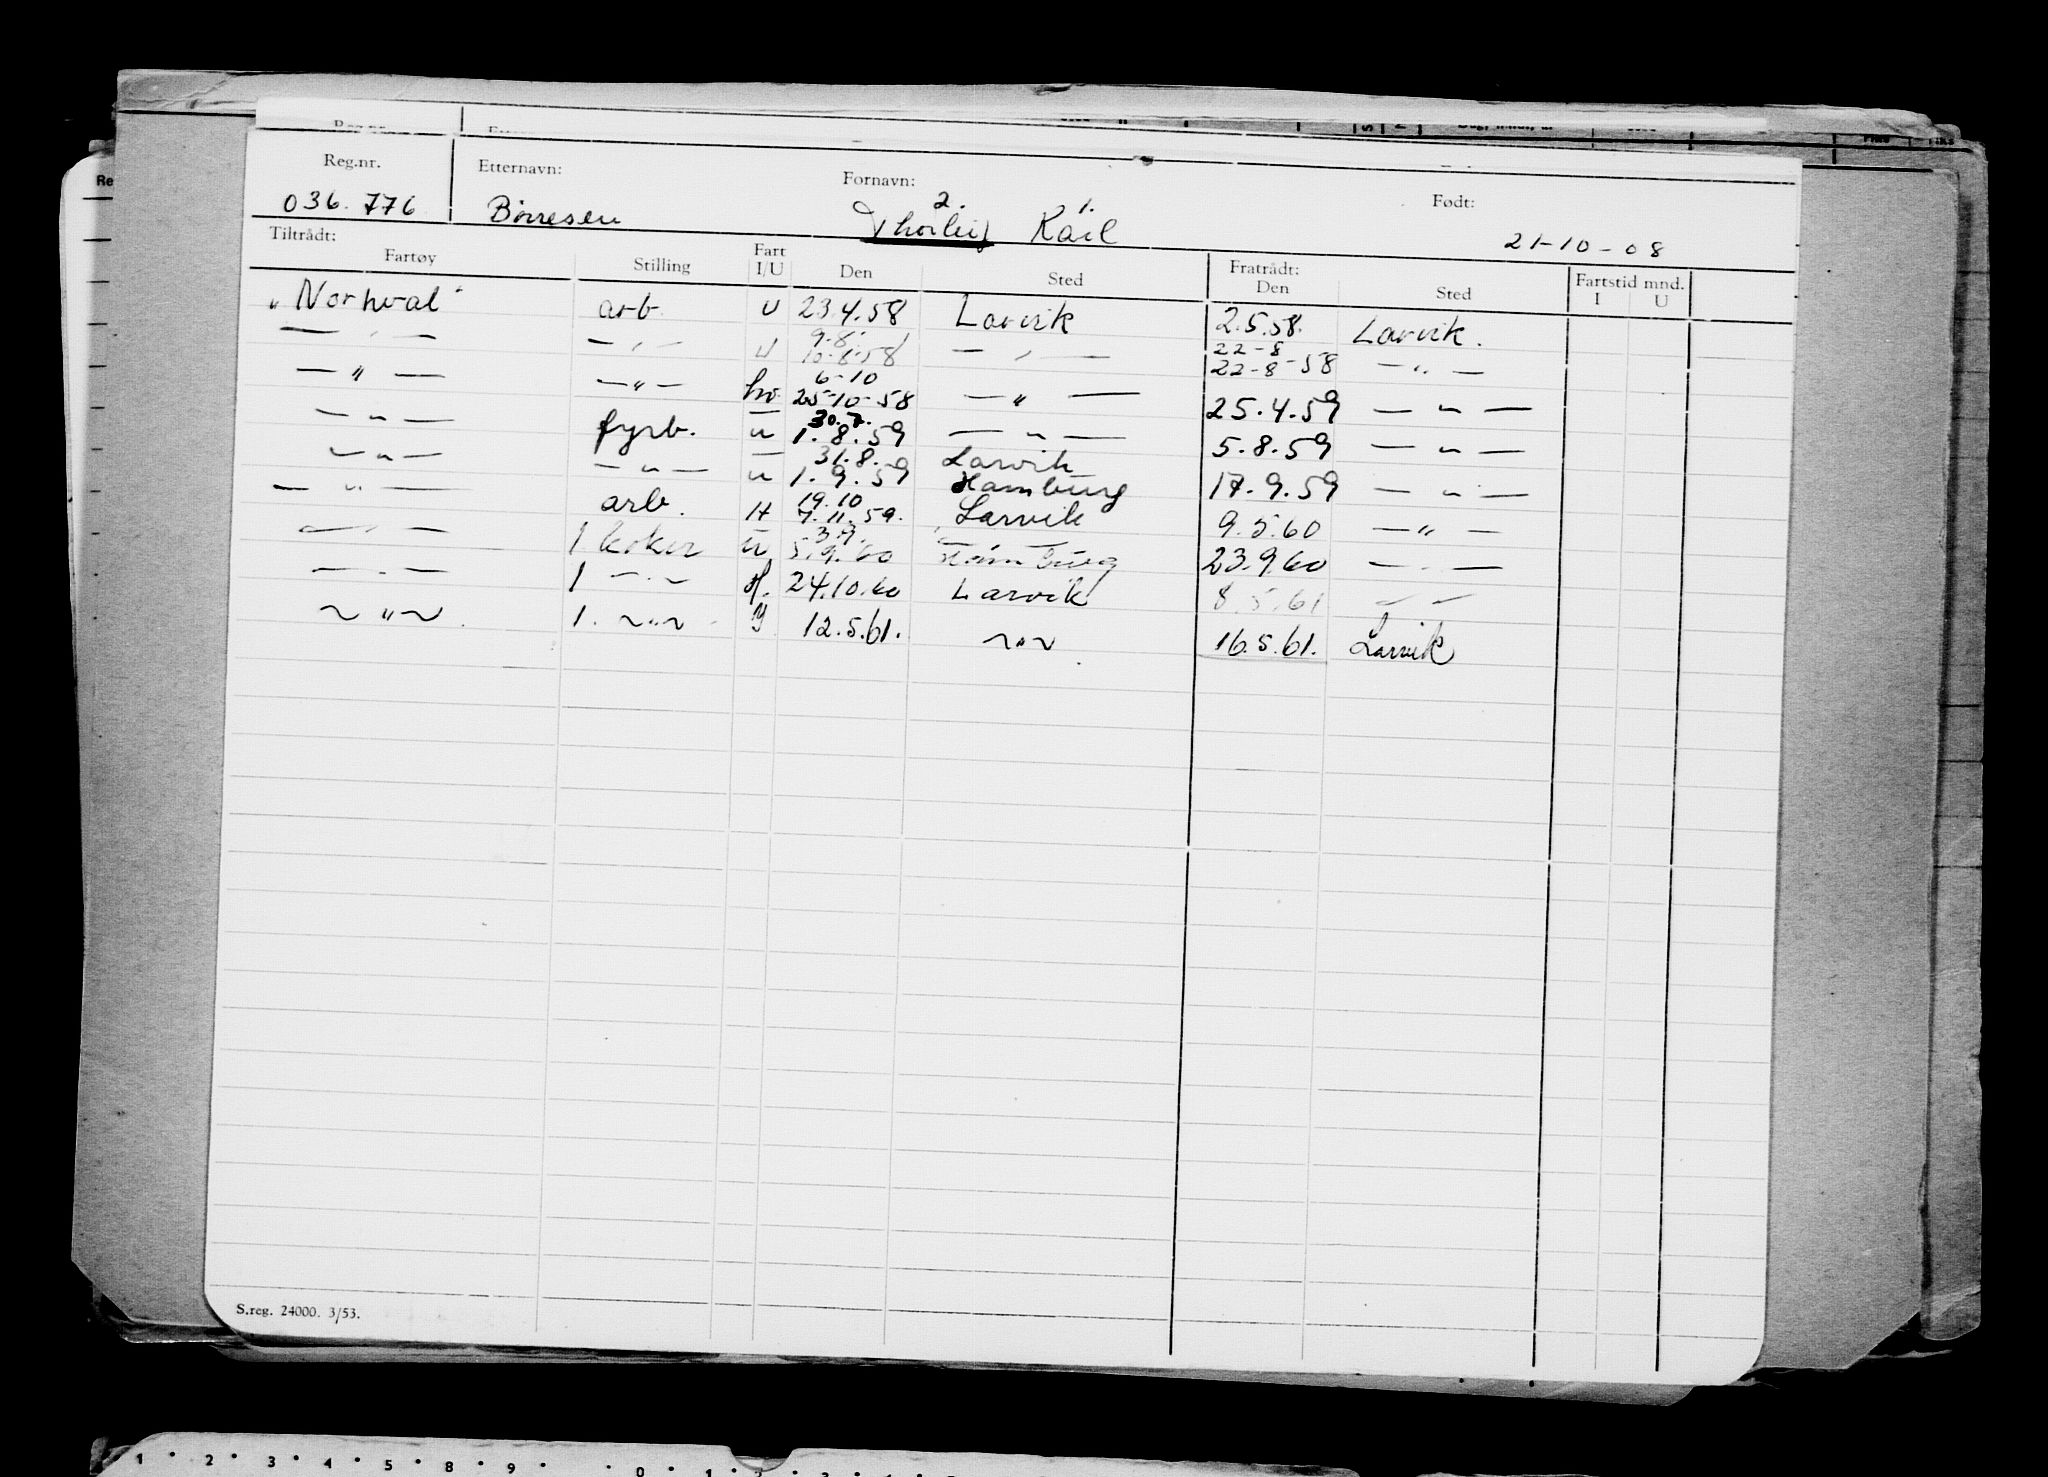 Reg.nr. Etternavn: Fornavn: Født:
2. 1.
036.776 Børresen Thorleif Kåre 21-10-08
Tiltrådt: Fartøy Stilling Fart I/U Den Sted Fratrådt: Den Sted Fartstid mnd. I U
"Norhval" arb. U 23.4.58 Larvik 2.5.58. Larvik.
9.8. 22-8
— " — — " — U 10-8-58 — " — 22-8-58 — " —
6-10
— " — — " — hv. 25-10-58 — " — 25.4.59 — " —
30.7.
— " — fyrb. u 1.8.59 — " — 5.8.59 — " —
31.8. Larvik
— " — — " — u 1.9.59 Hamburg 17.9.59 — " —
19.10
— " — arb. H 7.11.59. Larvik 9.5.60 — " —
3.9.
— " — 1 koker u 5.9.60 Hamburg 23.9.60 — " —
— " — 1 — " — H. 24.10.60 Larvik 8.5.61 — " —
~ " ~ 1. ~ " ~ 12.5.61. ~ " ~ 16.5.61. Larvik
S.reg. 24000. 3/53.
1 2 3 4 5 8 9 0 1 2 3